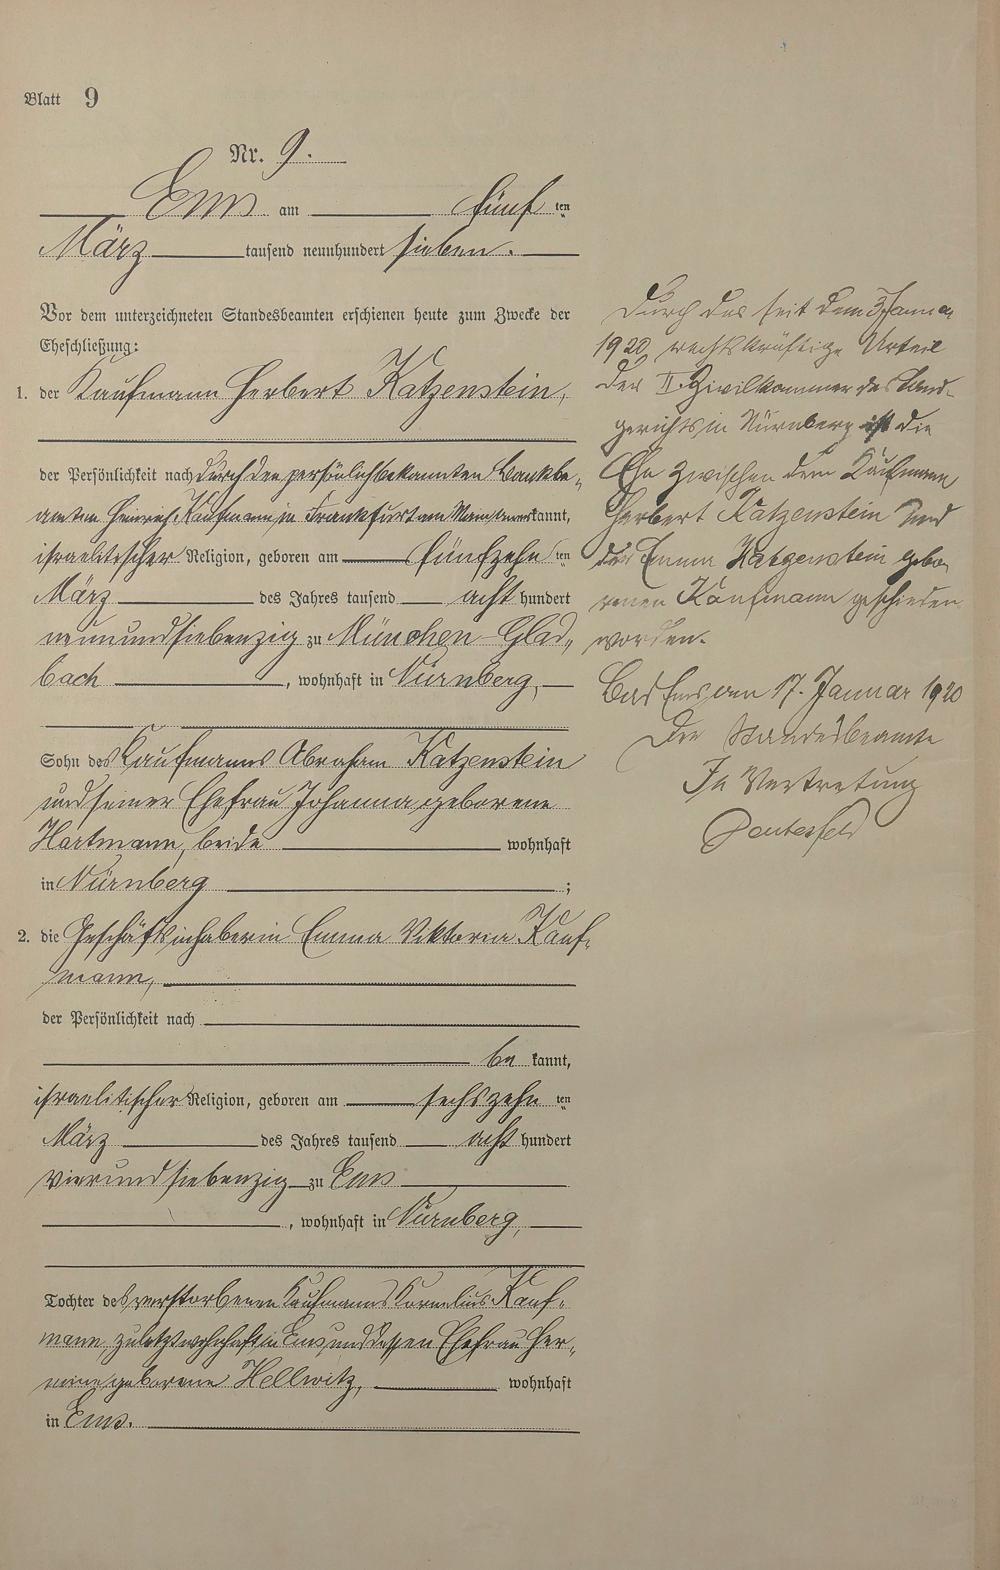 Blatt 9
Nr. 9.
Ems am fünf ten
März tausend neunhundert sieben.
Vor dem unterzeichneten Standesbeamten erschienen heute zum Zwecke der
Eheschließung:
1. der Kaufmann Herbert Katzenstein,
der Persönlichkeit nach durch den persönlich bekannten Bankbe-
amten Heinrich Kaufmann in Frankfurt am Main anerkannt,
israelitischer Religion, geboren am fünfzehn ten
März des Jahres tausend acht hundert
neunundsiebenzig zu München-Glad-
bach, wohnhaft in Nürnberg,
Sohn des Kaufmanns Abraham Katzenstein
und seiner Ehefrau Johanna geborene
Hartmann, beide wohnhaft
in Nürnberg;
2. die Geschäftsinhaberin Emma Viktoria Kauf-
mann,
der Persönlichkeit nach
be kannt,
israelitischer Religion, geboren am sechszehn ten
März des Jahres tausend acht hundert
vierundsiebenzig zu Ems
, wohnhaft in Nürnberg,
Tochter des verstorbenen Kaufmanns Kornelius Kauf-
mann, zuletzt wohnhaft in Ems, und dessen Ehefrau Her-
mine geborene Hellwitz, wohnhaft
in Ems.
Durch das seit dem 3 Januar
1920 rechtskräftige Urteil
der II. Zivilkammer des Land-
gerichts in Nürnberg ist die
Ehe zwischen dem Kaufmann
Herbert Katzenstein und
der Emma Katzenstein gebo-
renen Kaufmann geschieden
worden.
Bad Ems am 17. Januar 1920
Der Standesbeamte
In Vertretung